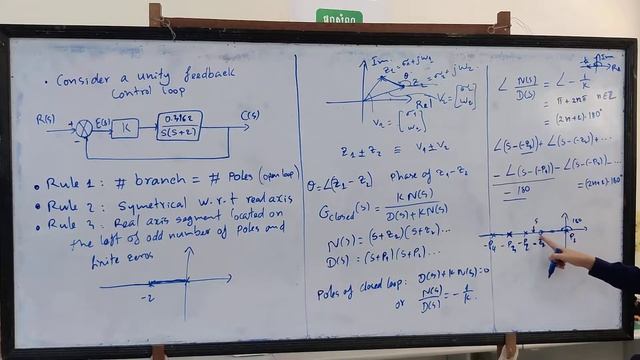 • Consider a unity feedback
control loop
R(s)
+
-
E(s)
K
0.3162
S(S+2)
C(s)
• Rule 1: # branch = # Poles (open loop)
• Rule 2: Symetrical w.r.t real axis
• Rule 3: Real axis segment located on
the left of odd number of poles and
finite zeros
-2
Im
Rel
Z1 ± Z2 ≡ V1 ± V2
θ = ∠(Z1 - Z2) Phase of Z1 - Z2
G closed (s) = K N(s) / D(s) + K N(s)
N(s) = (S+Z1)(S+Z2)...
D(s) = (S+P1)(S+P2)...
Poles of closed loop: D(s) + K N(s) = 0
or N(s)/D(s) = - 1/K.
∠ N(s)/D(s) = ∠ - 1/K
= π + 2nπ n∈Z
= (2n+1)·180°
- 180
= (2n+1)·180°
S
180
-P4 -P3 -P2